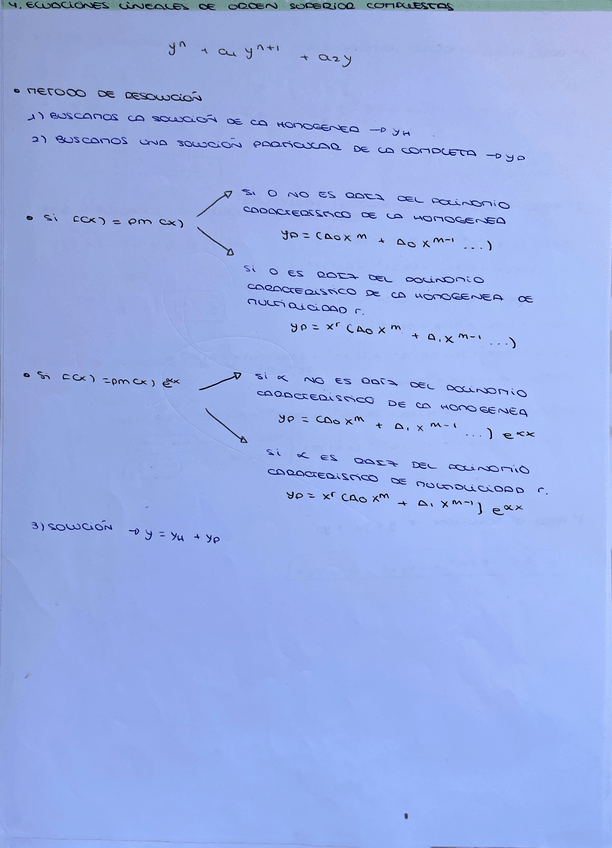 4. ECUACIONES LINEALES DE ORDEN SUPERIOR COMPLETAS
yⁿ + a₁ yⁿ⁺¹ + a₂y
• METODO DE RESOLUCIÓN
1) BUSCAMOS LA SOLUCIÓN DE LA HOMOGENEA → yH
2) BUSCAMOS UNA SOLUCIÓN PARTICULAR DE LA COMPLETA → yp
SI 0 NO ES RAIZ DEL POLINOMIO
CARACTERISTICO DE LA HOMOGENEA
• SI f(x) = pm(x)
yp = (A₀xᵐ + A₀ xᵐ⁻¹ ...)
SI 0 ES RAIZ DEL POLINOMIO
CARACTERISTICO DE LA HOMOGENEA DE
MULTIPLICIDAD r.
yp = xʳ (A₀xᵐ + A₁xᵐ⁻¹ ...)
• SI f(x) = pm(x) eᵅˣ
SI α NO ES RAIZ DEL POLINOMIO
CARACTERISTICO DE LA HOMOGENEA
yp = (A₀xᵐ + A₁xᵐ⁻¹ ...) eᵅˣ
SI α ES RAIZ DEL POLINOMIO
CARACTERISTICO DE MULTIPLICIDAD r.
yp = xʳ (A₀xᵐ + A₁ xᵐ⁻¹) eᵅˣ
3) SOLUCIÓN → y = yH + yp